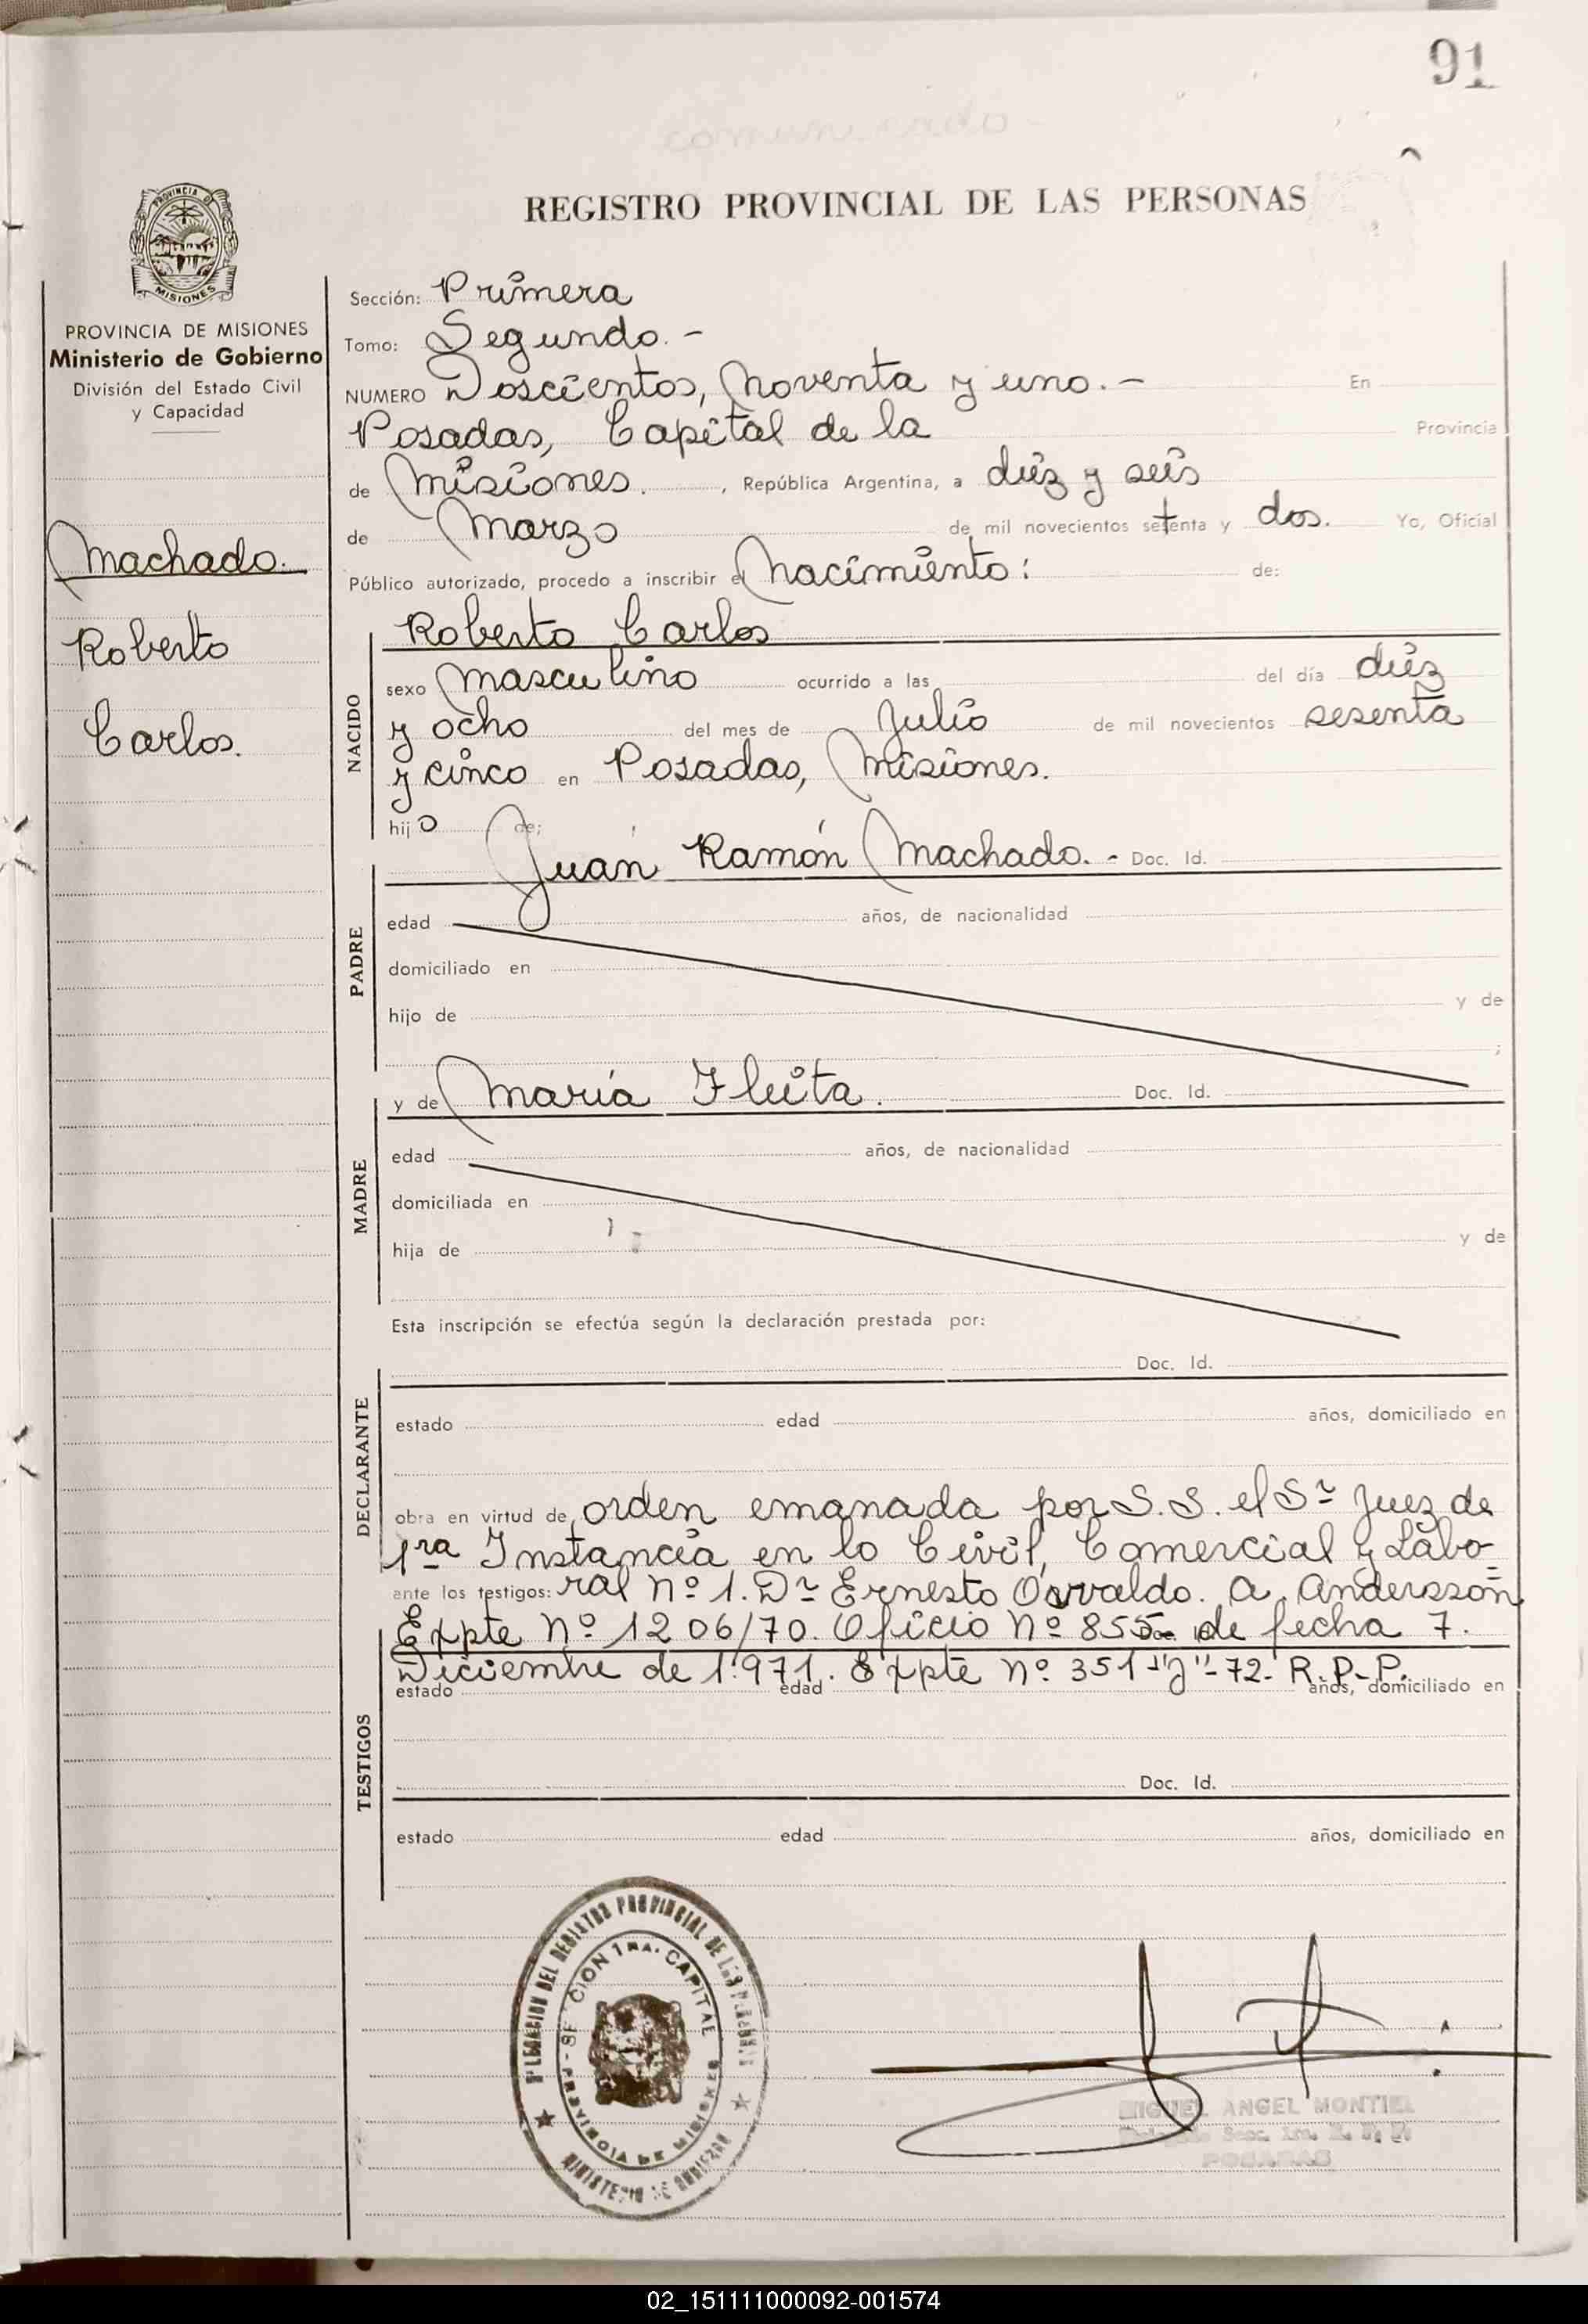 91
comunicado -
REGISTRO PROVINCIAL DE LAS PERSONAS
PROVINCIA DE
MISIONES
PROVINCIA DE MISIONES
Ministerio de Gobierno
División del Estado Civil
y Capacidad
Machado.
Roberto
Carlos.
Sección: Primera
Tomo: Segundo. -
NUMERO Doscientos, Noventa y uno. - En
Posadas, Capital de la Provincia
de Misiones. , República Argentina, a diez y seis
de Marzo de mil novecientos setenta y dos. Yo, Oficial
Público autorizado, procedo a inscribir el Nacimiento: de:
NACIDO
Roberto Carlos
sexo Masculino ocurrido a las del día diez
y ocho del mes de Julio de mil novecientos sesenta
y cinco en Posadas, Misiones.
hijo de;
PADRE
Juan Ramón Machado. - Doc. Id.
edad años, de nacionalidad
domiciliado en
hijo de y de
;
MADRE
y de María Fleita. Doc. Id.
edad años, de nacionalidad
domiciliada en
hija de y de
Esta inscripción se efectúa según la declaración prestada por:
Doc. Id.
DECLARANTE
estado edad años, domiciliado en
obra en virtud de orden emanada por S.S. el Sr Juez de
1ra Instancia en lo Civil, Comercial y Labo=
ante los testigos: ral Nº 1. Dr Ernesto Osvaldo. A. Andersson
Expte Nº 1206/70. Oficio Nº 855 de fecha 7.
Diciembre de 1.971. Expte Nº 351-"J"-72- R.P-P.
TESTIGOS
estado edad años, domiciliado en
Doc. Id.
estado edad años, domiciliado en
DELEGACION DEL REGISTRO PROVINCIAL DE LAS PERSONAS
SECCION 1RA. CAPITAL
PROVINCIA DE MISIONES
MINISTERIO DE GOBIERNO
MIGUEL ANGEL MONTIEL
Secc. 1ra. R. P. P.
POSADAS
02_151111000092-001574